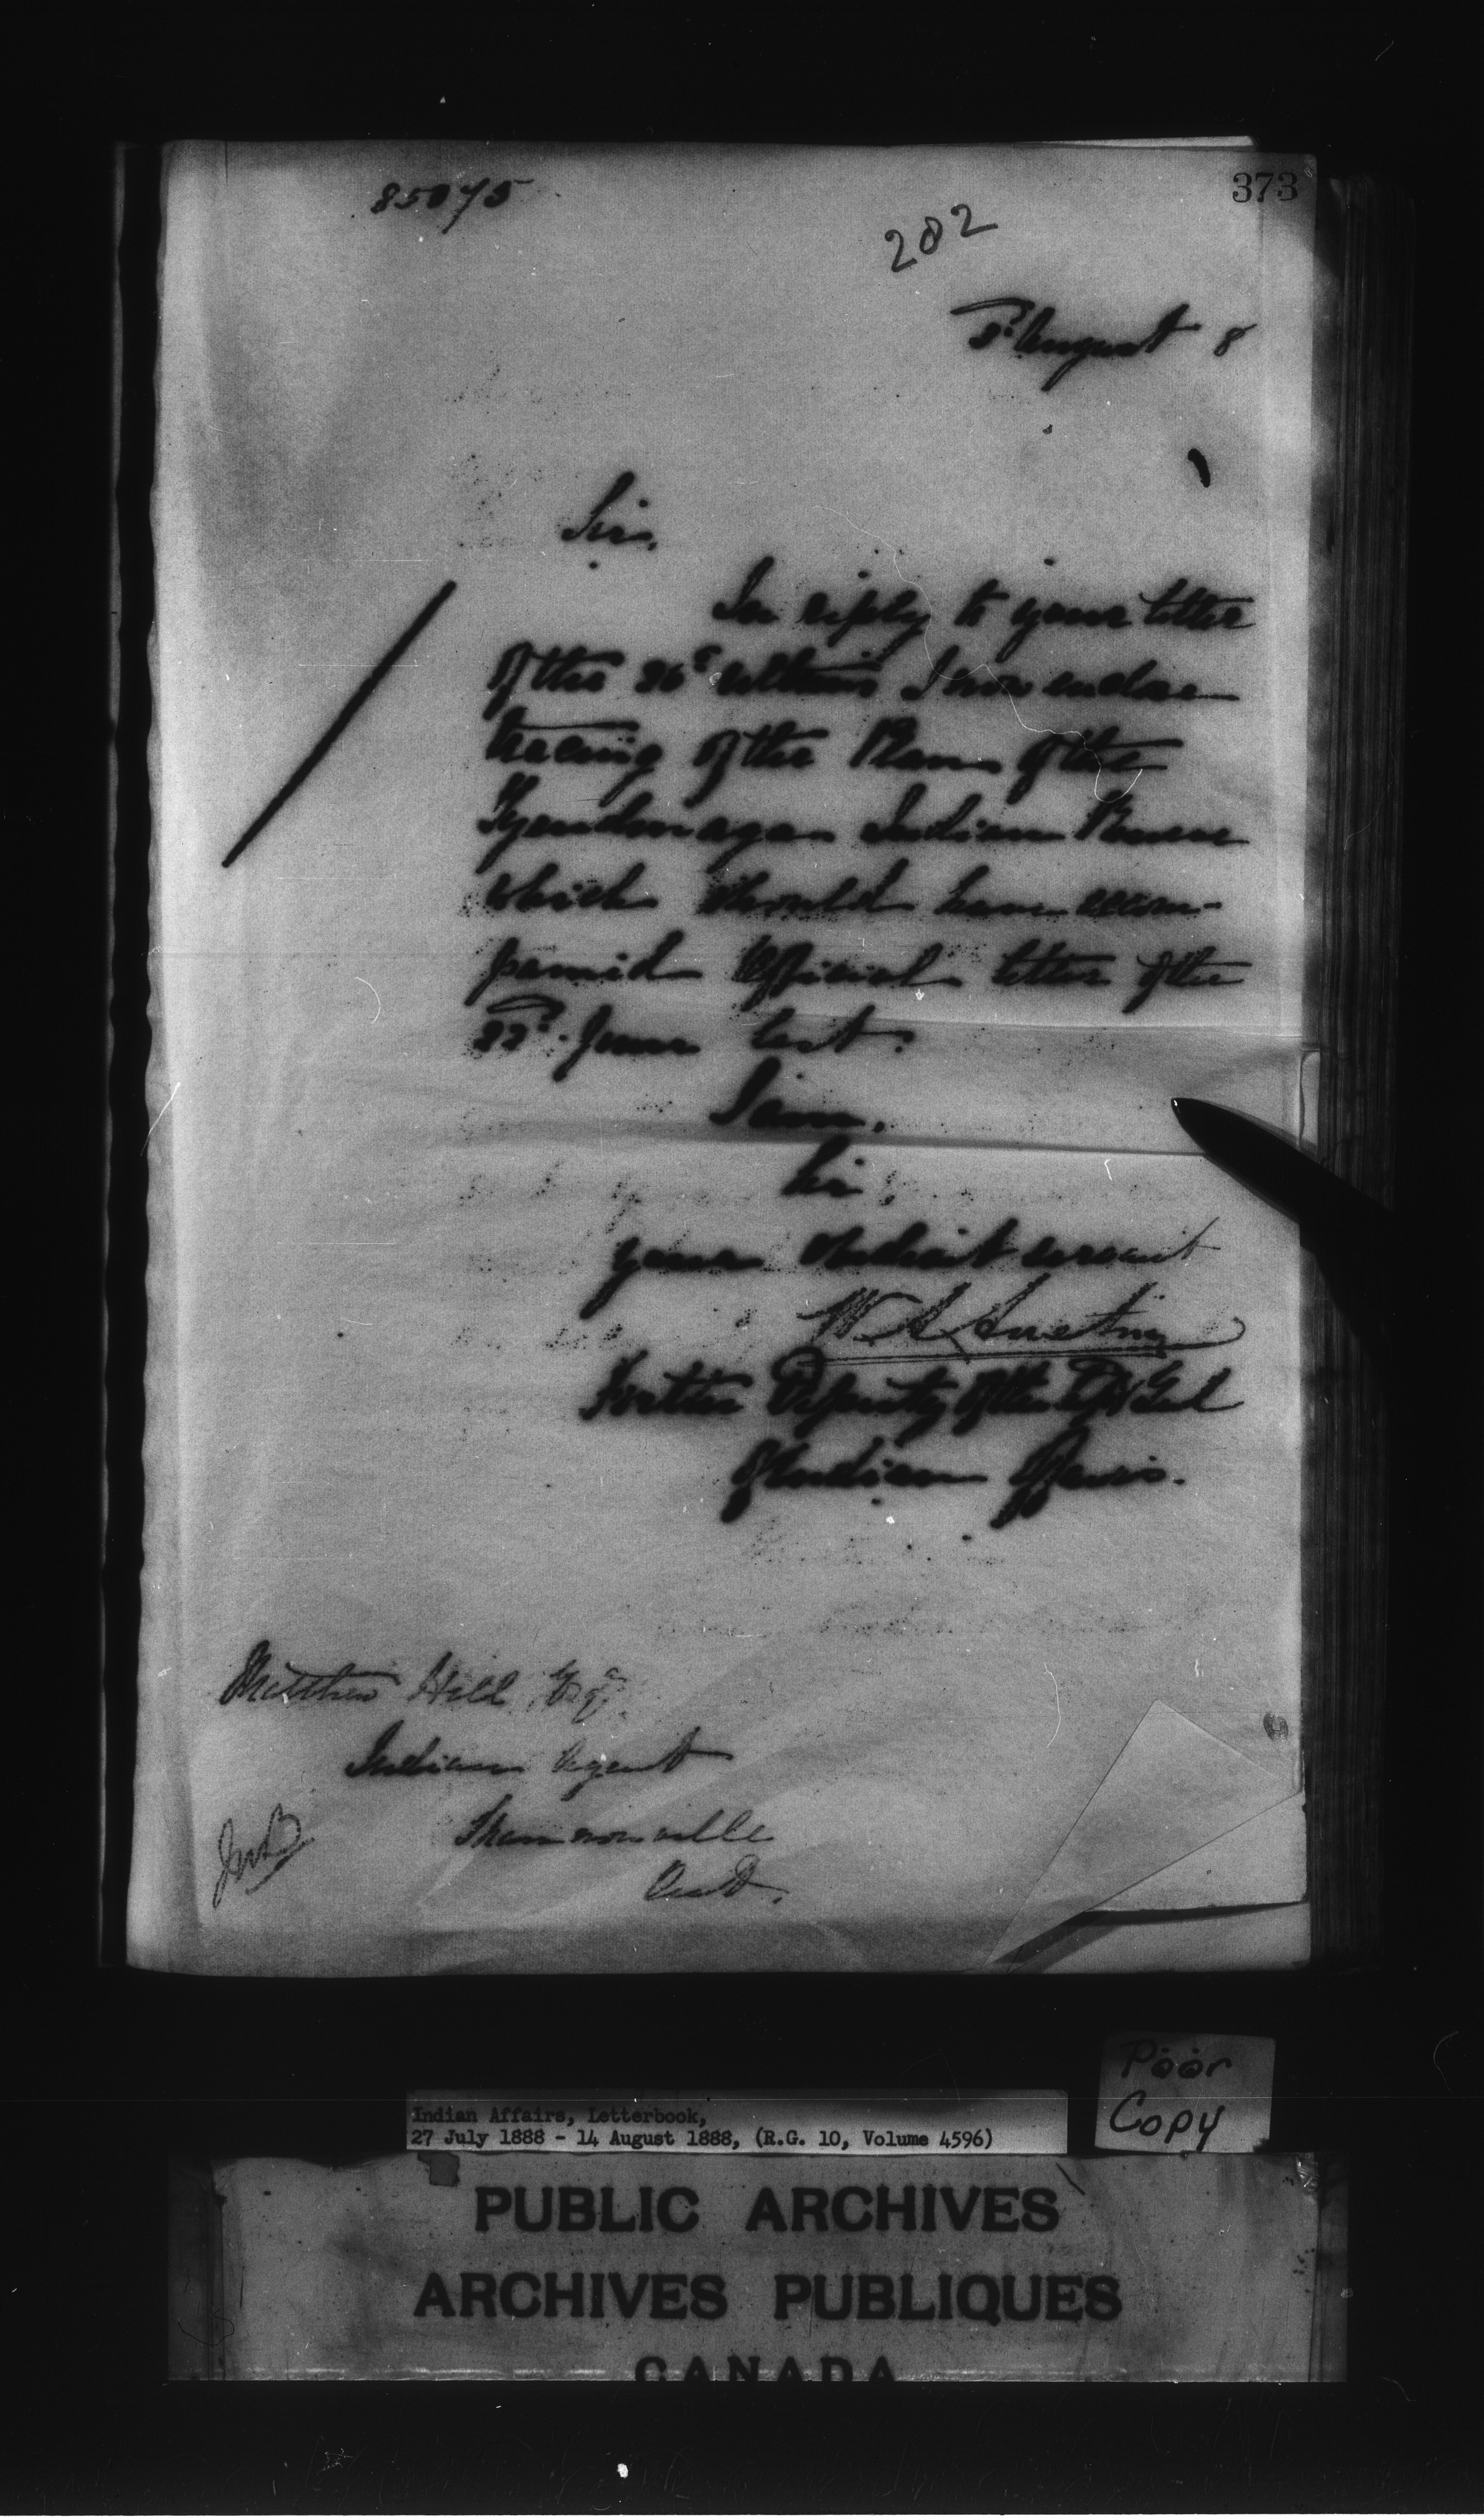 85075
373
282
August 8
Sir,
In reply to your letter
of the 26th ultimo I now enclose
tracing of the Plan of the
Tyendinaga Indian Reserve
which should have accom-
panied Official letter of the
June last.
I am,
Sir,
your obedient servant
W A Austin
For the Deputy of the Gen'l
of Indian Affairs.
Matthew Hill Esq.
Indian Agent
Shannonville
Ont.
Poor
Copy
Indian Affairs, Letterbook,
27 July 1888 - 14 August 1888, (R.G. 10, Volume 4596)
PUBLIC ARCHIVES
ARCHIVES PUBLIQUES
CANADA